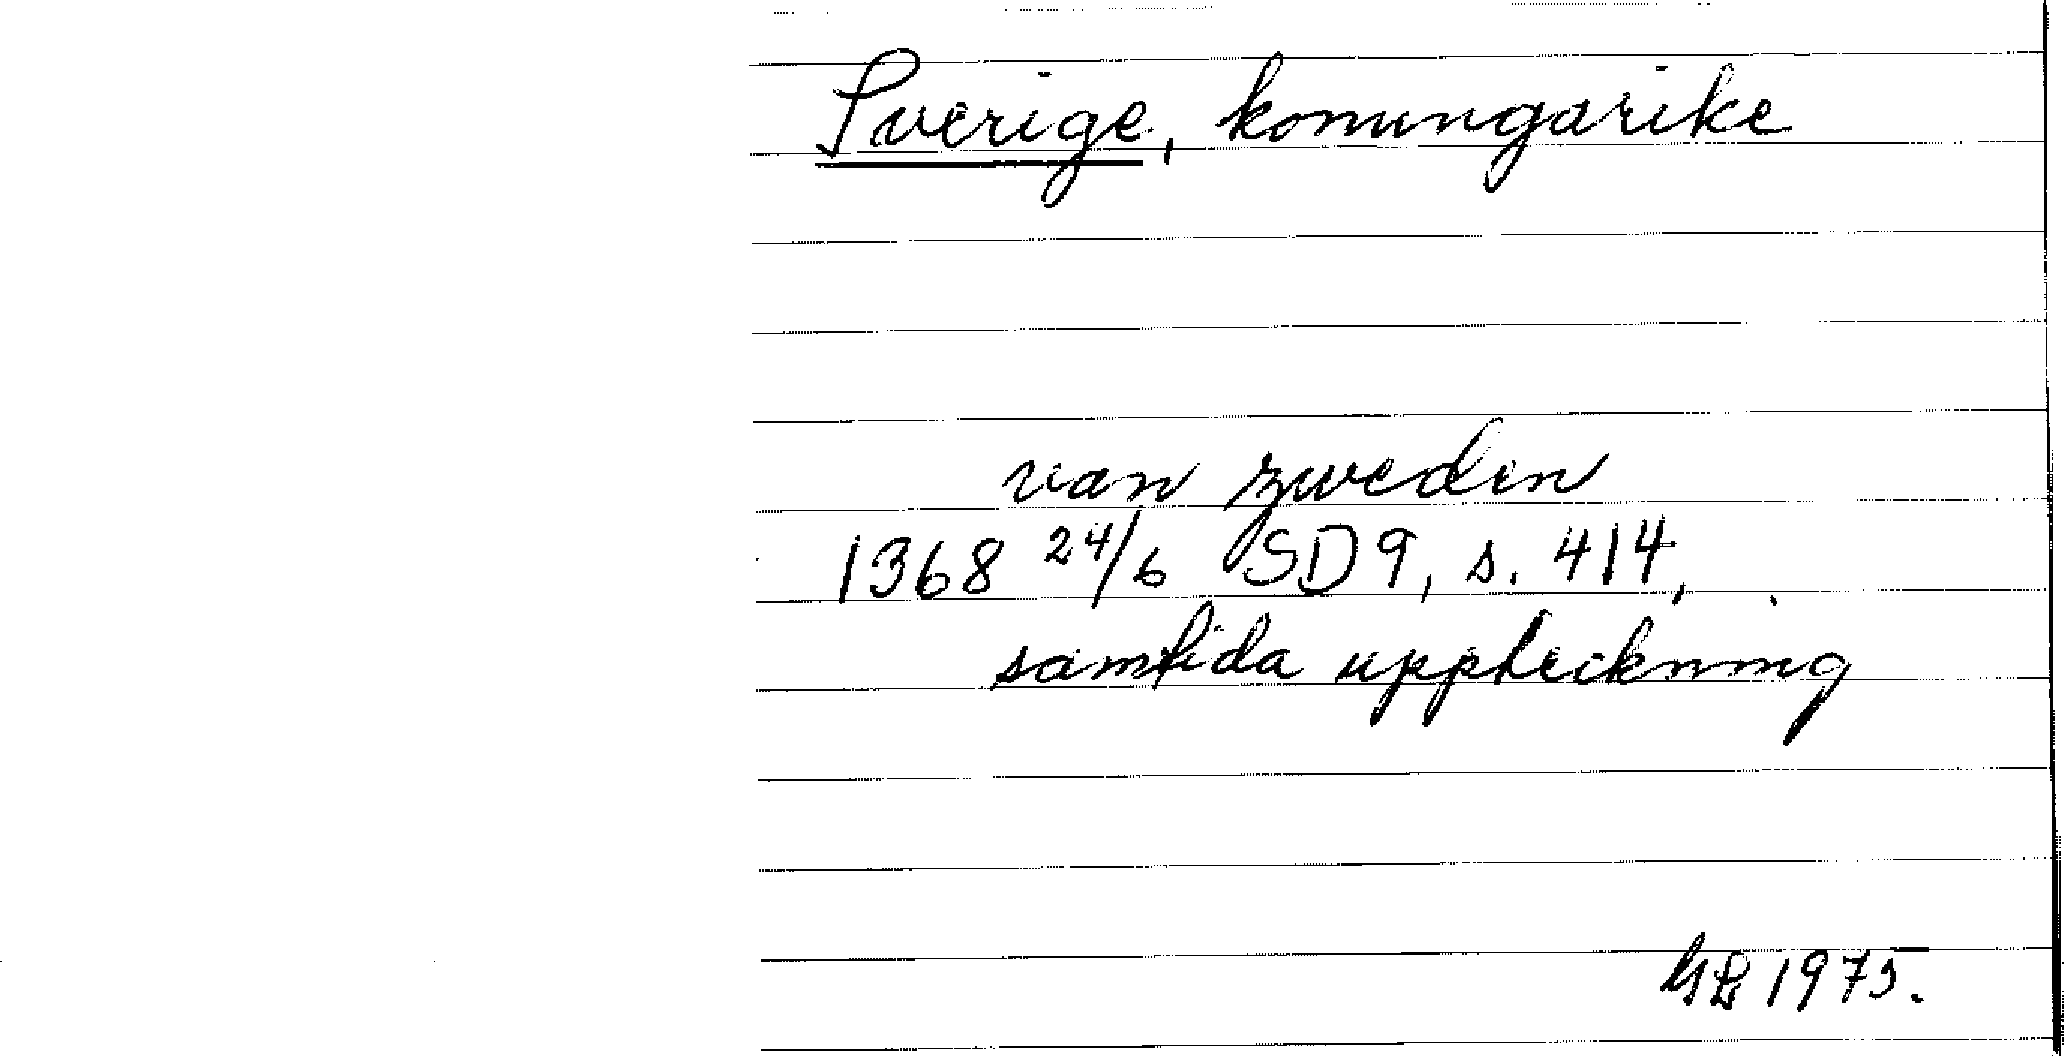 Sverige, konungarike
van zweden
1368 24/6 SD 9, s. 414,
samtida uppteckning
1975.